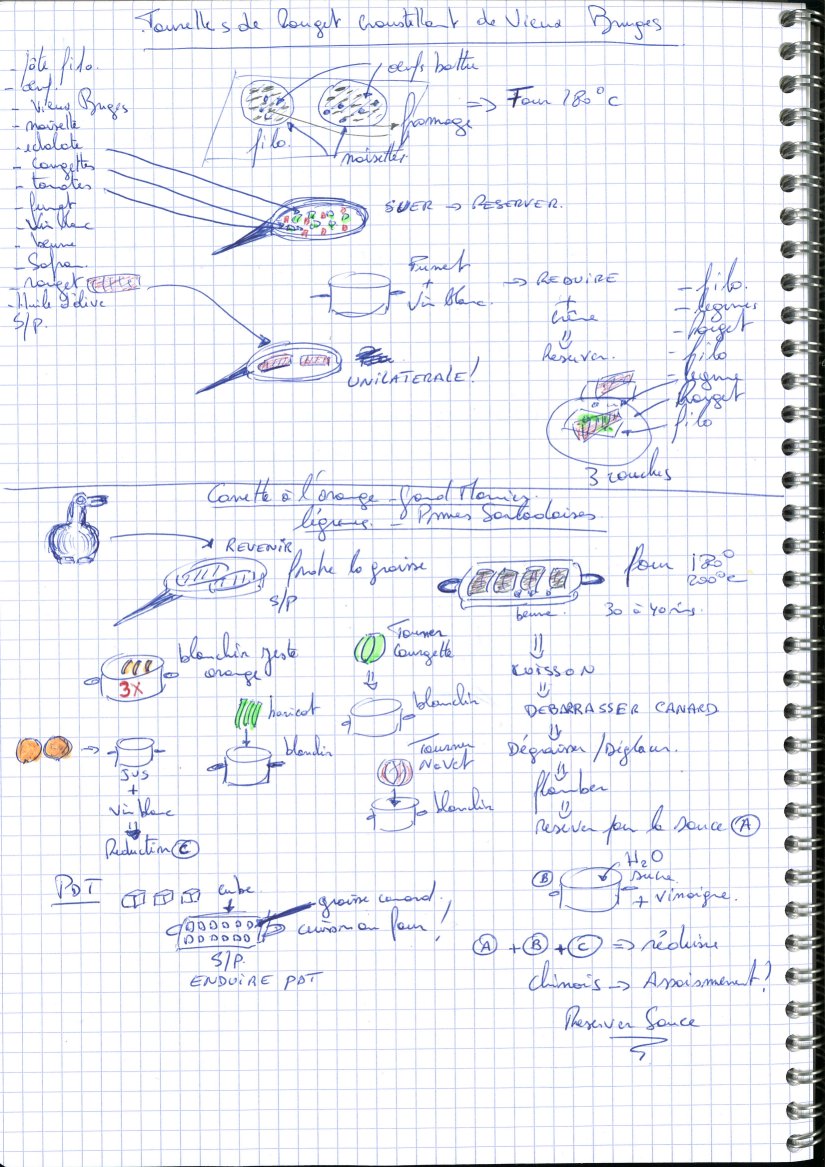 Tourelles de Rouget croustillant de Vieux Bruges
- pâte filo.
- œuf.
- Vieux Bruges
- noisette
- echalote
- Courgettes
- tomates
- fumet
- Vin blanc
- beurre
- Safran
- rouget
- Huile d'olive
S/P.
œufs battu
fromage
filo.
noisettes
=> Four 180°c
SUER -> RESERVER.
Fumet
+
Vin blanc.
-> REDUIRE
+
Crème
Reserver.
UNILATERALE!
- filo.
- legumes
- rouget
- filo
- legume
- Rouget
- filo
3 couches
Canette à l'orange - Grand Marnier
légumes - Pommes Sarladaises
REVENIR
S/P
four 180°
200°c
beurre
30 à 40 min.
blanchir zeste
orange
3X
Tourner
Courgette
blanchir
haricot
blanchir
Tourner
Navet
blanchir
CUISSON
DEBARRASSER CANARD
Dégraisser / Déglacer.
flamber
reserver pour la sauce A
JUS
+
Vin blanc
Reduction C
PDT
cube
graisse canard
cuisson au four!
S/P.
ENDUIRE PDT
B
H2O
sucre
+ vinaigre.
A + B + C => réduire
Chinois -> Assaisonnement!
Reserver Sauce